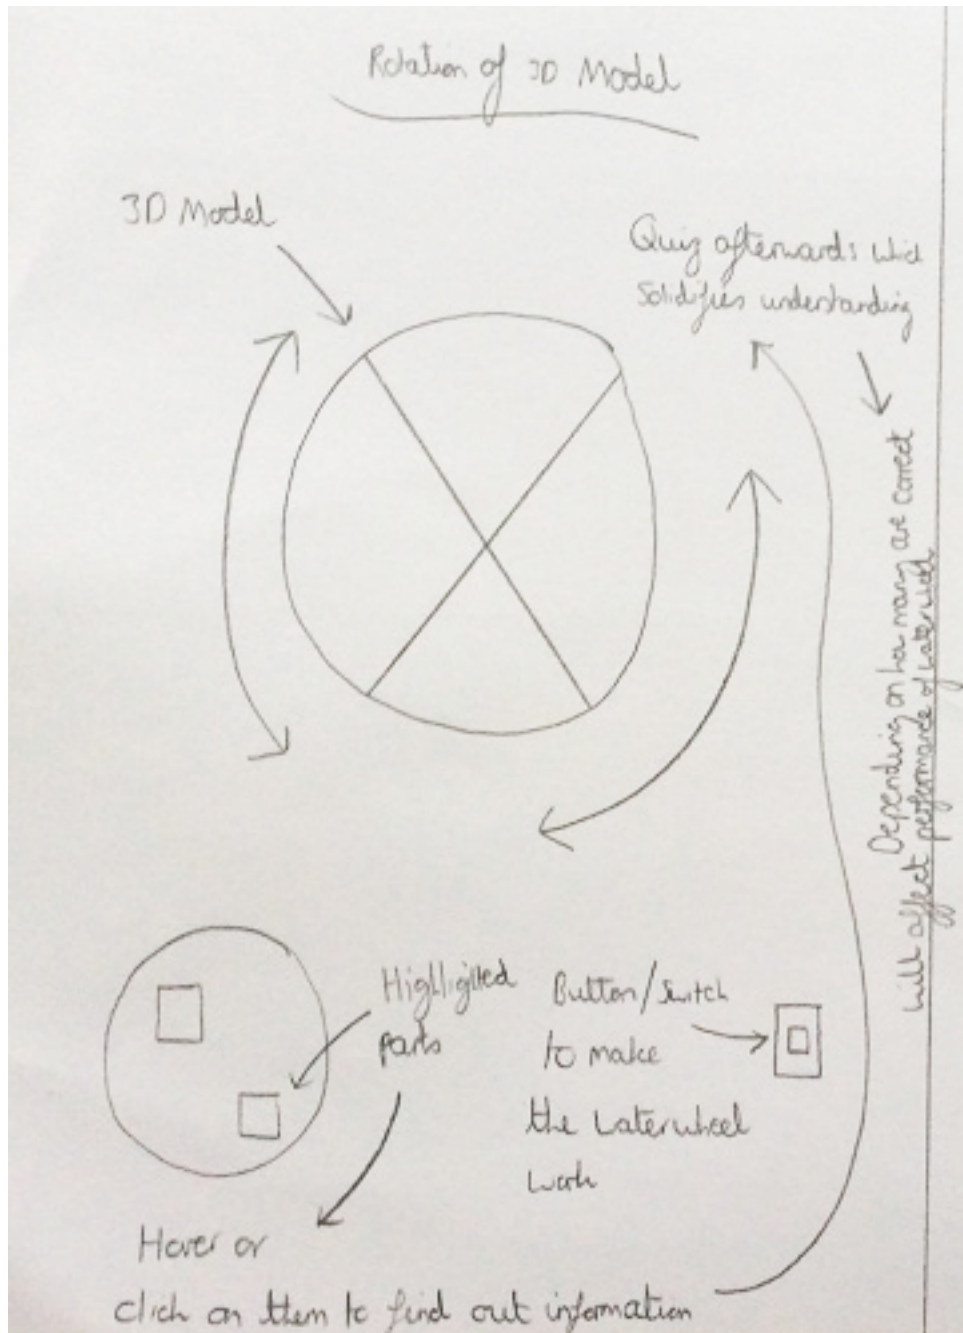 Rotation of 3D Model
3D Model
Quiz afterwards which
Solidifies understanding
Depending on how many are correct
will affect performance of waterwheel
Highlighted
parts
Button/Switch
to make
the waterwheel
work
Hover or
click on them to find out information